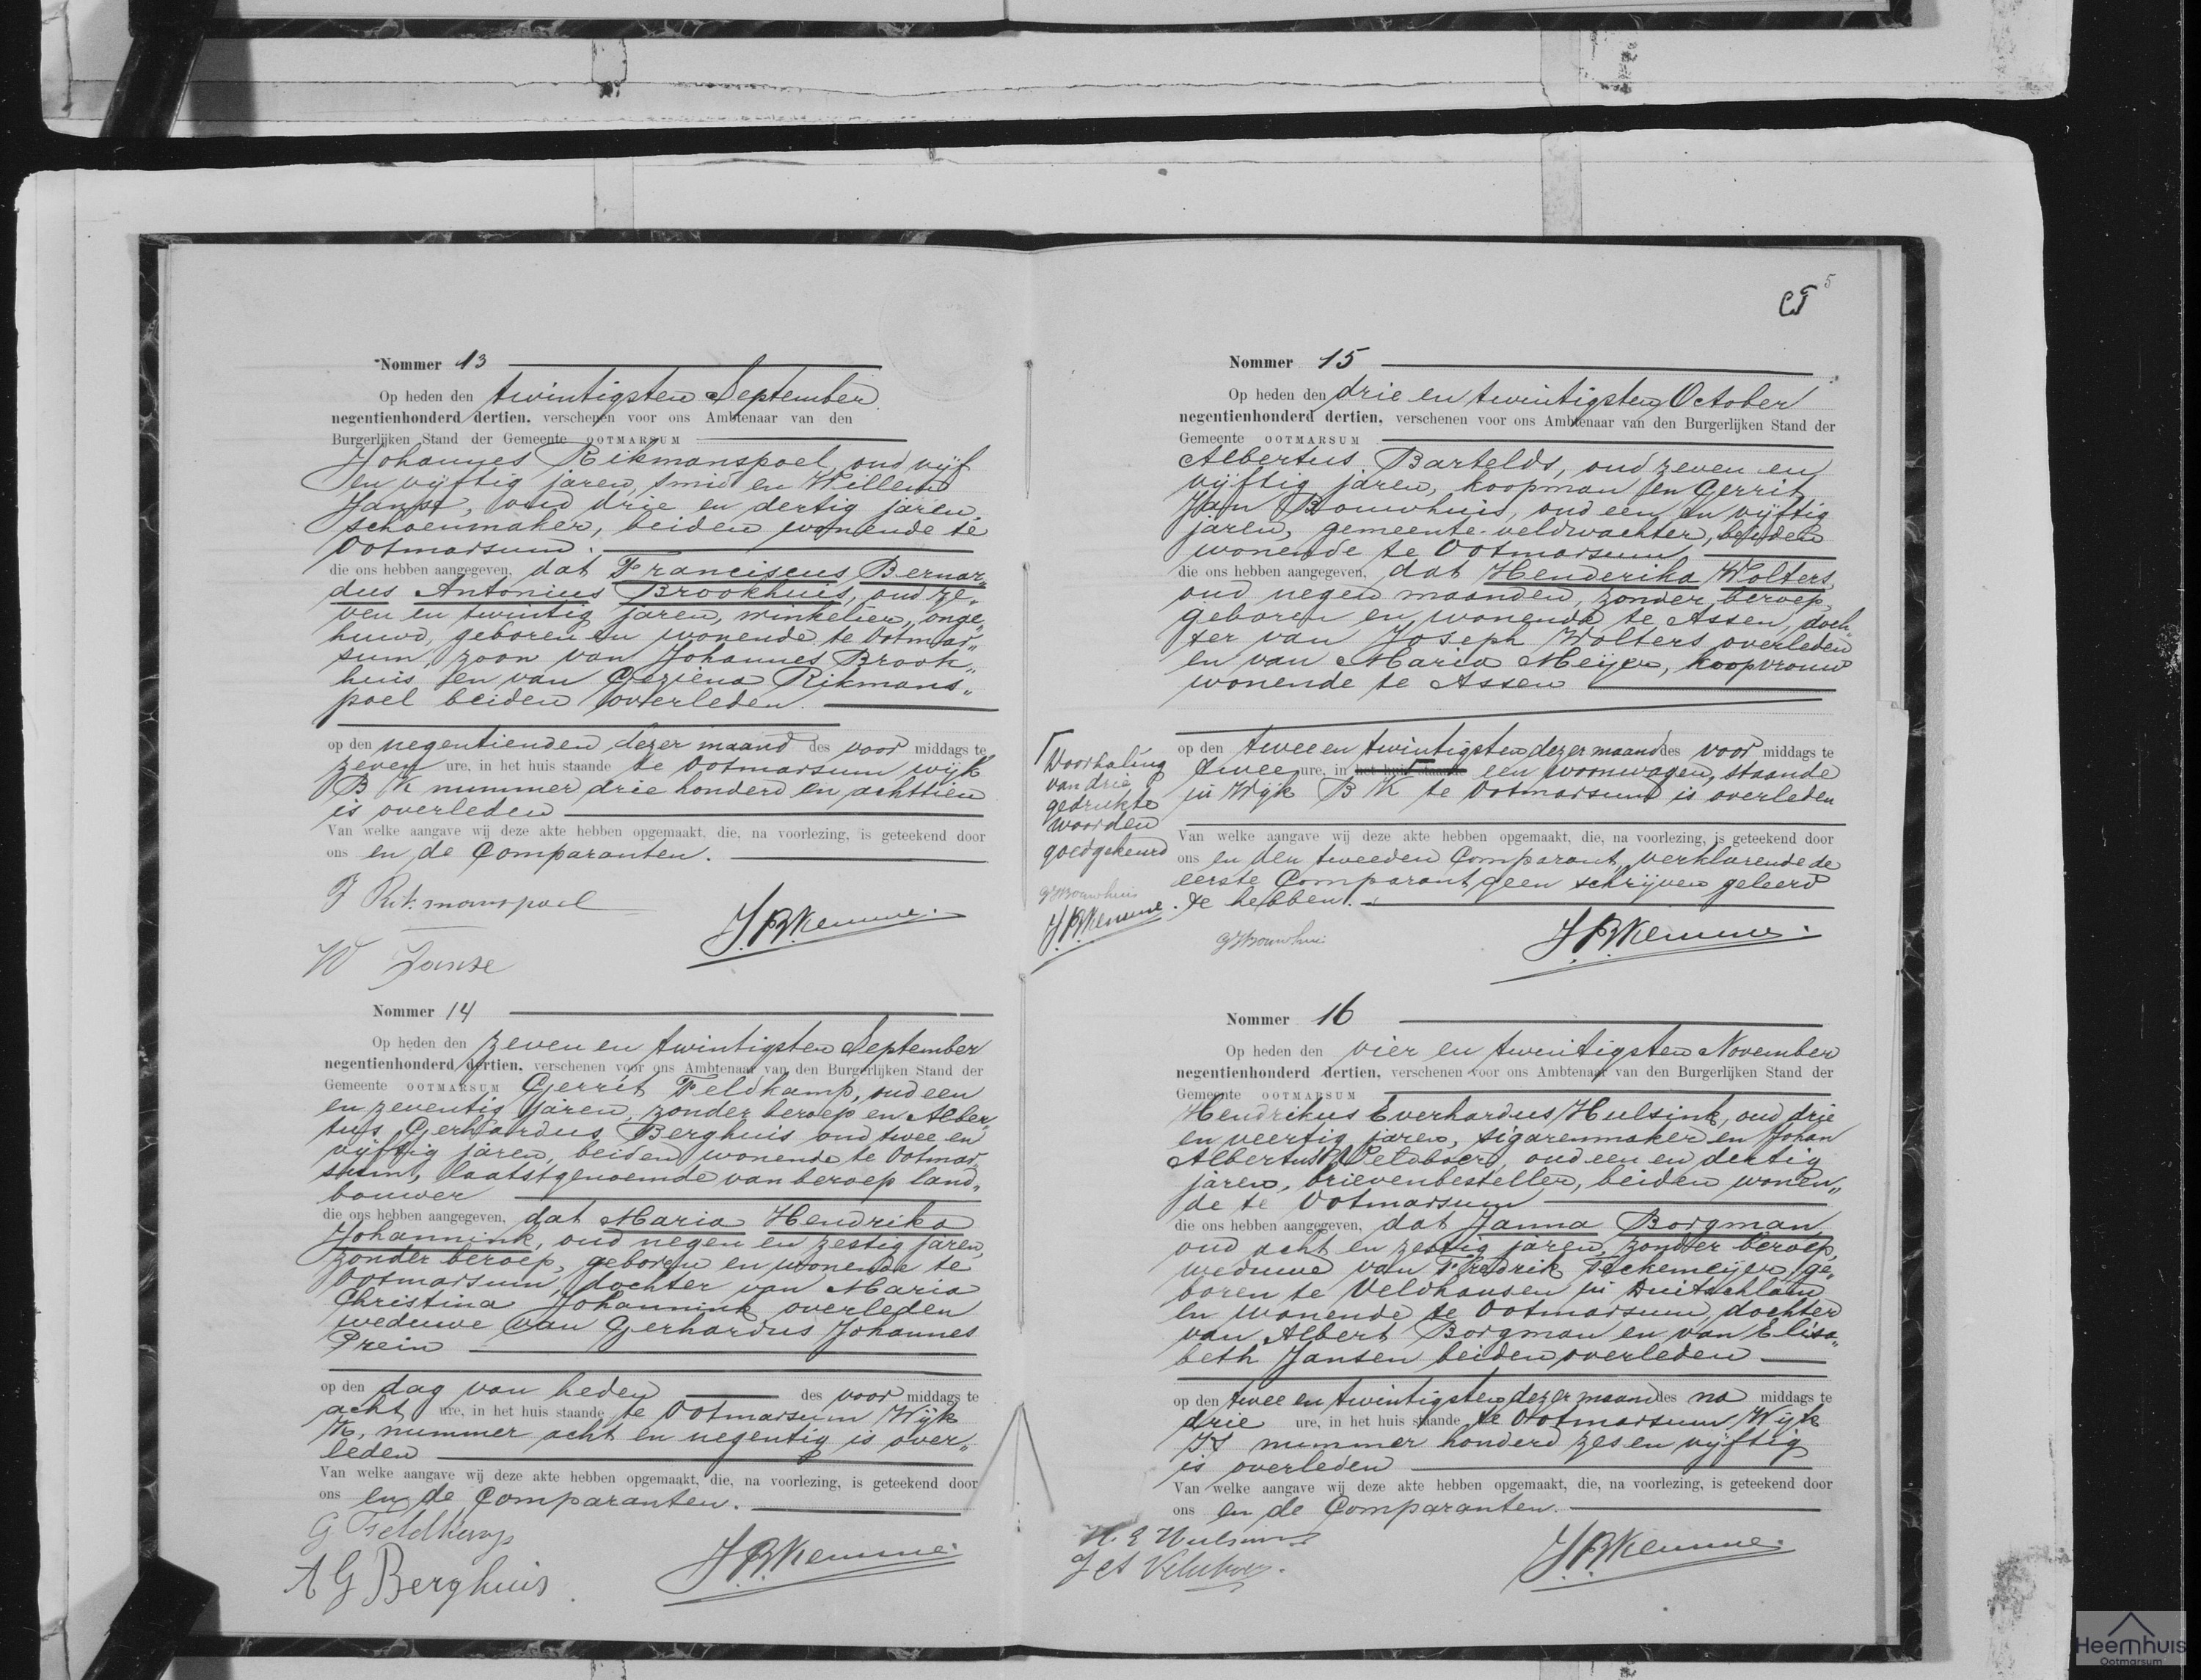 Nommer 13
Op heden den twintigsten September
negentienhonderd dertien, verschenen voor ons Ambtenaar van den
Burgerlijken Stand der Gemeente OOTMARSUM
Johannes Rikmanspoel, oud vijf
en vijftig jaren, smid en Willem
Janse, oud drie en dertig jaren,
schoenmaker, beiden wonende te
Ootmarsum.
die ons hebben aangegeven, dat Franciscus Bernar„
dus Antonius Brookhuis, oud ze„
ven en twintig jaren, winkelier, onge„
huwd, geboren en wonende te Ootmar„
sum, zoon van Johannes Brook„
huis en van Geziena Rikmans„
poel beiden overleden.
op den negentienden dezer maand des voor middags te
zeven ure, in het huis staande te Ootmarsum wijk
B K nummer drie honderd en achttien
is overleden
Van welke aangave wij deze akte hebben opgemaakt, die, na voorlezing, is geteekend door
ons en de Comparanten.
J Rikmanspoel
J.B.Kemme.
W Janse
Nommer 14
Op heden den zeven en twintigsten September
negentienhonderd dertien, verschenen voor ons Ambtenaar van den Burgerlijken Stand der
Gemeente OOTMARSUM Gerrit Feldkamp, oud een
en zeventig jaren, zonder beroep en Alber„
tus Gerhardus Berghuis oud twee en
vijftig jaren, beiden wonende te Ootmar„
sum, laatstgenoemde van beroep land„
bouwer
die ons hebben aangegeven, dat Maria Hendrika
Johannink, oud negen en zestig jaren,
zonder beroep, geboren en wonende te
Ootmarsum, dochter van Maria
Christina Johannink overleden
weduwe van Gerhardus Johannes
Prein
op den dag van heden des voor middags te
acht ure, in het huis staande te Ootmarsum Wijk
K, nummer acht en negentig is over„
leden
Van welke aangave wij deze akte hebben opgemaakt, die, na voorlezing, is geteekend door
ons en de Comparanten.
G Feldkamp
J.B.Kemme.
A G Berghuis
5
Nommer 15
Op heden den drie en twintigsten October
negentienhonderd dertien, verschenen voor ons Ambtenaar van den Burgerlijken Stand der
Gemeente OOTMARSUM
Albertus Bartelds, oud zeven en
vijftig jaren, koopman en Gerrit
Jan Bouwhuis, oud een en vijftig
jaren, gemeente-veldwachter, beiden
wonende te Ootmarsum
die ons hebben aangegeven, dat Henderika Wolters,
oud negen maanden, zonder beroep,
geboren en wonende te Assen, doch„
ter van Joseph Wolters overleden
en van Maria Meijer, koopvrouw
wonende te Assen
op den twee en twintigsten dezer maand des voor middags te
twee ure, in het huis staande een woonwagen, staande
in Wijk B K te Ootmarsum is overleden
Van welke aangave wij deze akte hebben opgemaakt, die, na voorlezing, is geteekend door
ons en den tweeden Comparant, verklarende de
eerste Comparant geen schrijven geleerd
te hebben.
Doorhaling
van drie
gedrukte
woorden
goedgekeurd
GJBouwhuis
J.B.Kemme.
GJBouwhuis
J.B.Kemme.
Nommer 16
Op heden den vier en twintigsten November
negentienhonderd dertien, verschenen voor ons Ambtenaar van den Burgerlijken Stand der
Gemeente OOTMARSUM
Hendrikus Everhardus Hulsink, oud drie
en veertig jaren, sigarenmaker en Johan
Albertus Veldboer, oud een en dertig
jaren, brievenbesteller, beiden wonen„
de te Ootmarsum
die ons hebben aangegeven, dat Janna Borgman
oud acht en zestig jaren, zonder beroep,
weduwe van Fredrik ge„
boren te Veldhausen in Duitschland
en wonende te Ootmarsum, dochter
van Albert Borgman en van Elisa„
beth Jansen beiden overleden
op den twee en twintigsten dezer maand des na middags te
drie ure, in het huis staande te Ootmarsum Wijk
nummer honderd zes en vijftig
is overleden
Van welke aangave wij deze akte hebben opgemaakt, die, na voorlezing, is geteekend door
ons en de Comparanten.
H E Hulsink
J A Veldboer.
J.B.Kemme.
Heemhuis
Ootmarsum